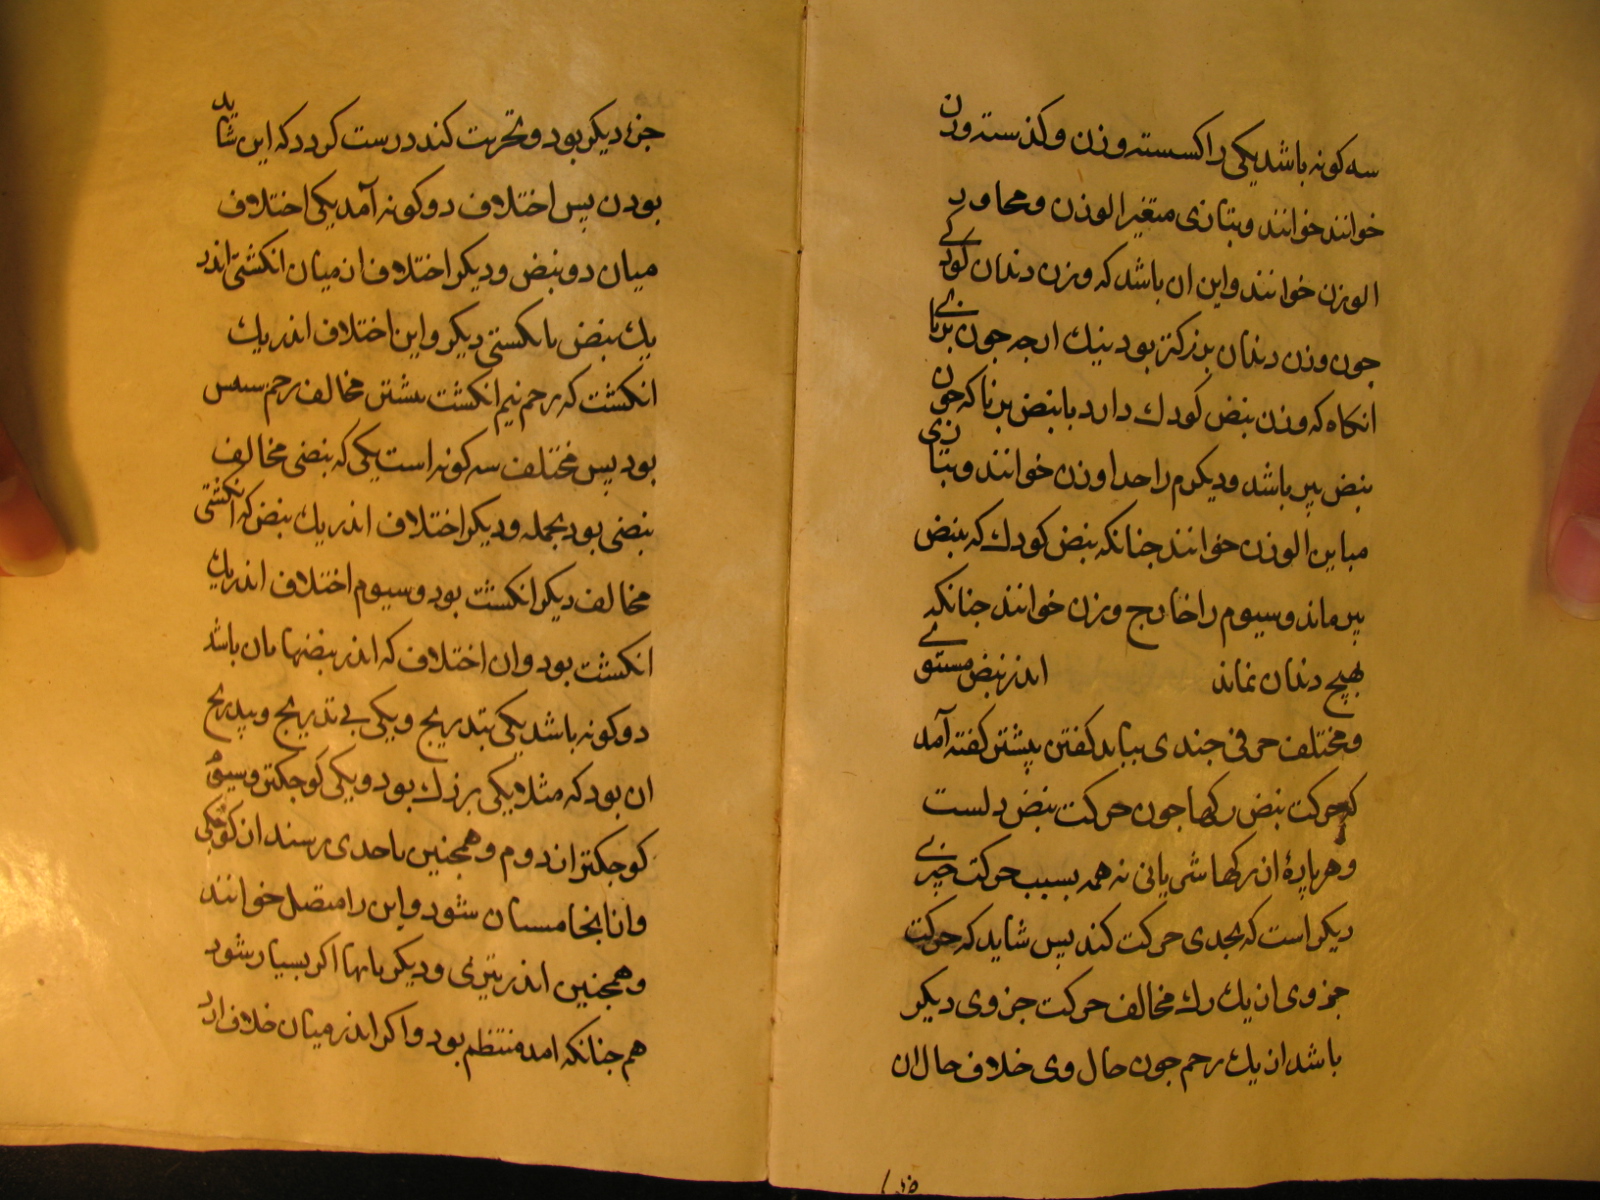 سه کونه باشد یکی را کسسته وزن و کذسته وزن
خوانند خوانند وبتازی متغیر الوزن ومجاوز
الوزن خوانند واین ان باشد که وزن دندان کودکے
جون وزن دندان بزرکتر بود نیك ارجه جون برنای
انکاه که وزن نبض کودك دارد با نبض برنا که جون
نبض پیر باشد ودیکرم را جدا وزن خوانند وبتازی
مباین الوزن خوانند جنانکه نبض کودك که بنبض
پیر ماند وسیوم را خارج وزن خوانند جنانکه
بهیج دندان نماند اندر نبض مستوے
ومختلف حرفی جندی بباید کفتن پیشتر کفته آمد
که حرکت نبض رکها جون حرکت نبض دلست
وهر پارهٔ ان رکهاء شریانی نه همه بسبب حرکت جیزے
دیکر است که بجدی حرکت کند پس شاید که حرکت
جزوی از یك رك مخالف حرکت جزوی دیکر
باشد از یك زخم جون حال وی خلاف حال ان
جزء دیکر بود وتجربت کند درست کردد که این شاید
بودن پس اختلاف دو کونه آمد یکی اختلاف
میان دو نبض ودیکر اختلاف از میان انکشتی اندر
یك نبض با نکستی دیکر واین اختلاف اندر یك
انکشت که زخم نیم انکشت پیشتر مخالف زخم سپس
بود پس مختلف سه کونه است یکی که نبضی مخالف
نبضی بود بجمله ودیکر اختلاف اندر یك نبض که انکشتی
مخالف دیکر انکشت بود وسیوم اختلاف اندر یك
انکشت بود وان اختلاف که اندر نبضها مان باشد
دو کونه باشد یکی بتدریج ویکی بے تدریج وبتدریج
ان بود که مثلا یکی بزرك بود ویکی کوجکتر وسیوم
کوجکتر از دوم وهمجنین تا حدی رسند از کوجکی
وانا بخامسان شود واین را متصل خوانند
وهمجنین اندر تیزی ودیکر بابها اکر بسیار شود
هم جنانکه امد منتظم بود واکر اندر میان خلاف ارد